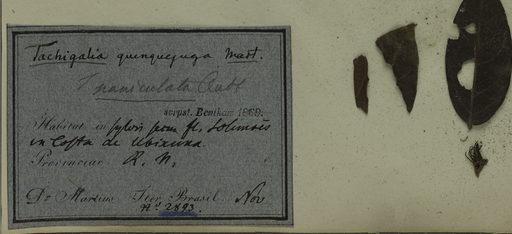 Tachigalia quinquejuga Mart.
Paniculata Aubl
scrpst. Bentham 1869.
Habitat in sylvis prov. fl. Solimoës
in Costa de
Provinciae R. N.
Dr Martius Iter Brasil. Nov
Nº 2893.